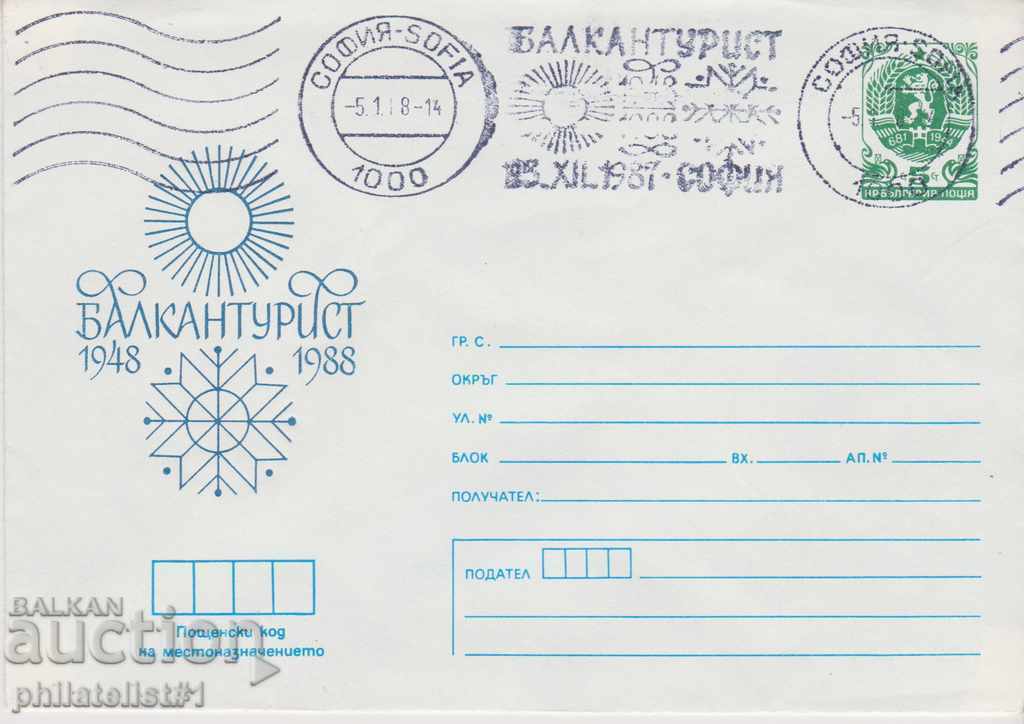 СОФИЯ-SOFIA
-5.1. 8-14
1000
БАЛКАНТУРИСТ
1948
1988
XII.1987-СОФИЯ
СОФИЯ-SOFIA
681 1944
5
НР БЪЛГАРИЯ ПОЩА
БАЛКАНТУРИСТ
1948 1988
ГР. С.
ОКРЪГ
УЛ. №
БЛОК ВХ. АП. №
ПОЛУЧАТЕЛ:
ПОДАТЕЛ
Пощенски код
на местоназначението
BALKAN
auction
philatelist#1